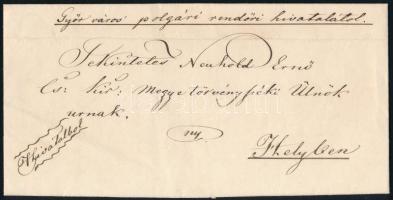 Győr város polgári rendőri hivatalától.
Tekintetes Neuhold Ernő
Cs: kir: Megye törvényszéki Ülnök
urnak.
Hivatalból
Helyben